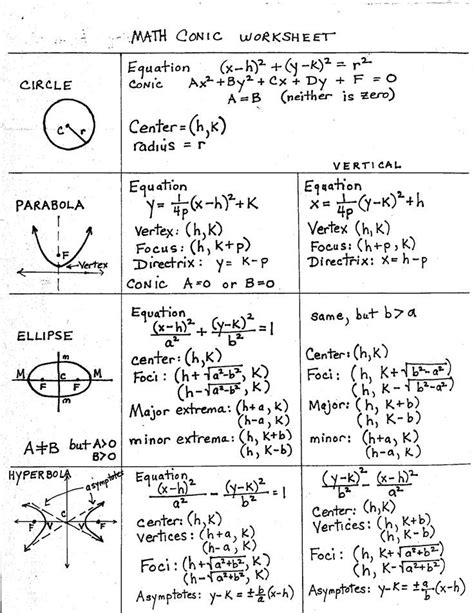 MATH CONIC WORKSHEET
CIRCLE
C
r
Equation (x-h)² + (y-k)² = r²
CONIC Ax² + By² + Cx + Dy + F = 0
A = B (neither is zero)
Center = (h,k)
radius = r
VERTICAL
PARABOLA
F
Vertex
Equation
y = 1/4p (x-h)² + K
Vertex: (h,K)
Focus: (h, K+p)
Directrix: y= K-p
CONIC A=0 or B=0
Equation
x = 1/4p (y-K)² + h
Vertex (h,K)
Focus: (h+p, K)
Directrix: x= h-p
ELLIPSE
m
M F C F M
m
A≠B but A>0
B>0
Equation
(x-h)²/a² + (y-K)²/b² = 1
center: (h,K)
Foci: (h+√a²-b², K)
(h-√a²-b², K)
Major extrema: (h+a, K)
(h-a, K)
minor extrema: (h, K+b)
(h, K-b)
same, but b>a
Center: (h,K)
Foci: (h, K+√b²-a²)
(h, K-√b²-a²)
Major: (h, K+b)
(h, K-b)
minor: (h+a, K)
(h-a, K)
HYPERBOLA
asymptotes
C
F V V F
Equation
(x-h)²/a² - (y-K)²/b² = 1
center: (h,K)
Vertices: (h+a, K)
(h-a, K)
Foci: (h+√a²+b², K)
(h-√a²+b², K)
Asymptotes: y-K = ±b/a (x-h)
(y-K)²/b² - (x-h)²/a²
Center: (h,K)
Vertices: (h, K+b)
(h, K-b)
Foci: (h, K+√a²+b²)
(h, K-√a²+b²)
Asymptotes: y-K = ±b/a (x-h)